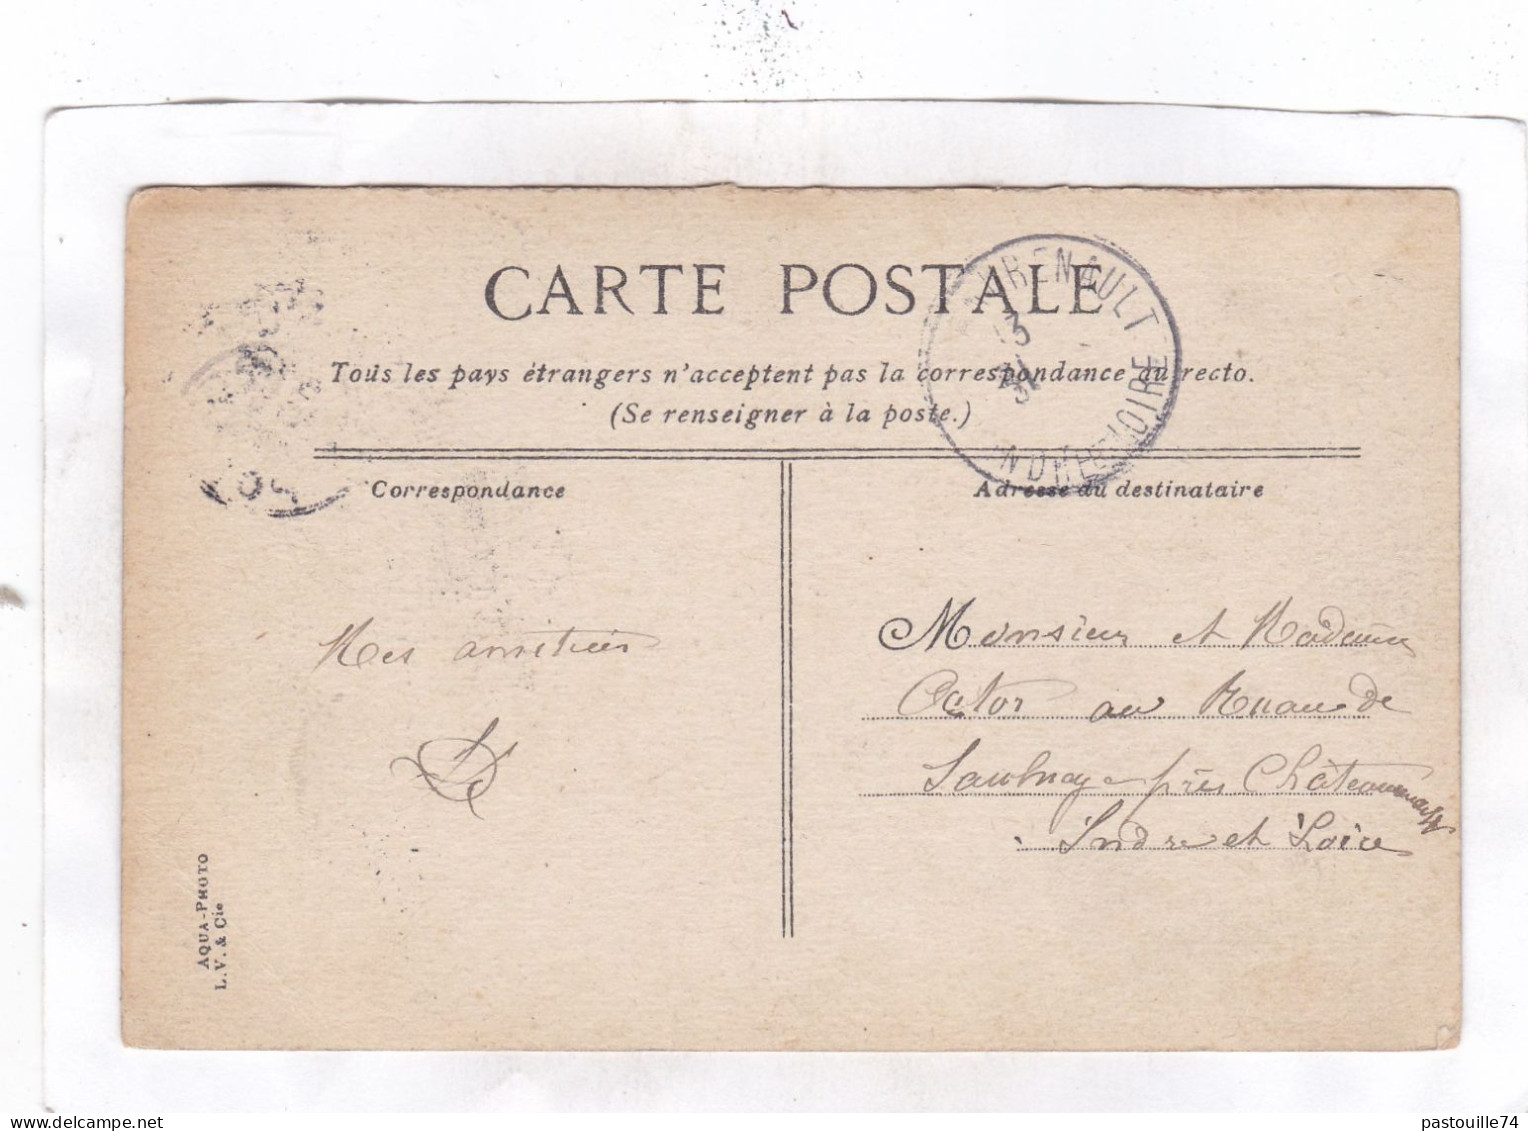 CARTE POSTALE
Tous les pays étrangers n'acceptent pas la correspondance au recto.
(Se renseigner à la poste.)
RENAULT
INDRE-ET-LOIRE
13
31
Correspondance
Adresse du destinataire
Mes amitiés
Monsieur et Madame
au de
près Châteaurenault
Indre et Loire
AQUA-PHOTO
L.V. & Cie
pastouille74